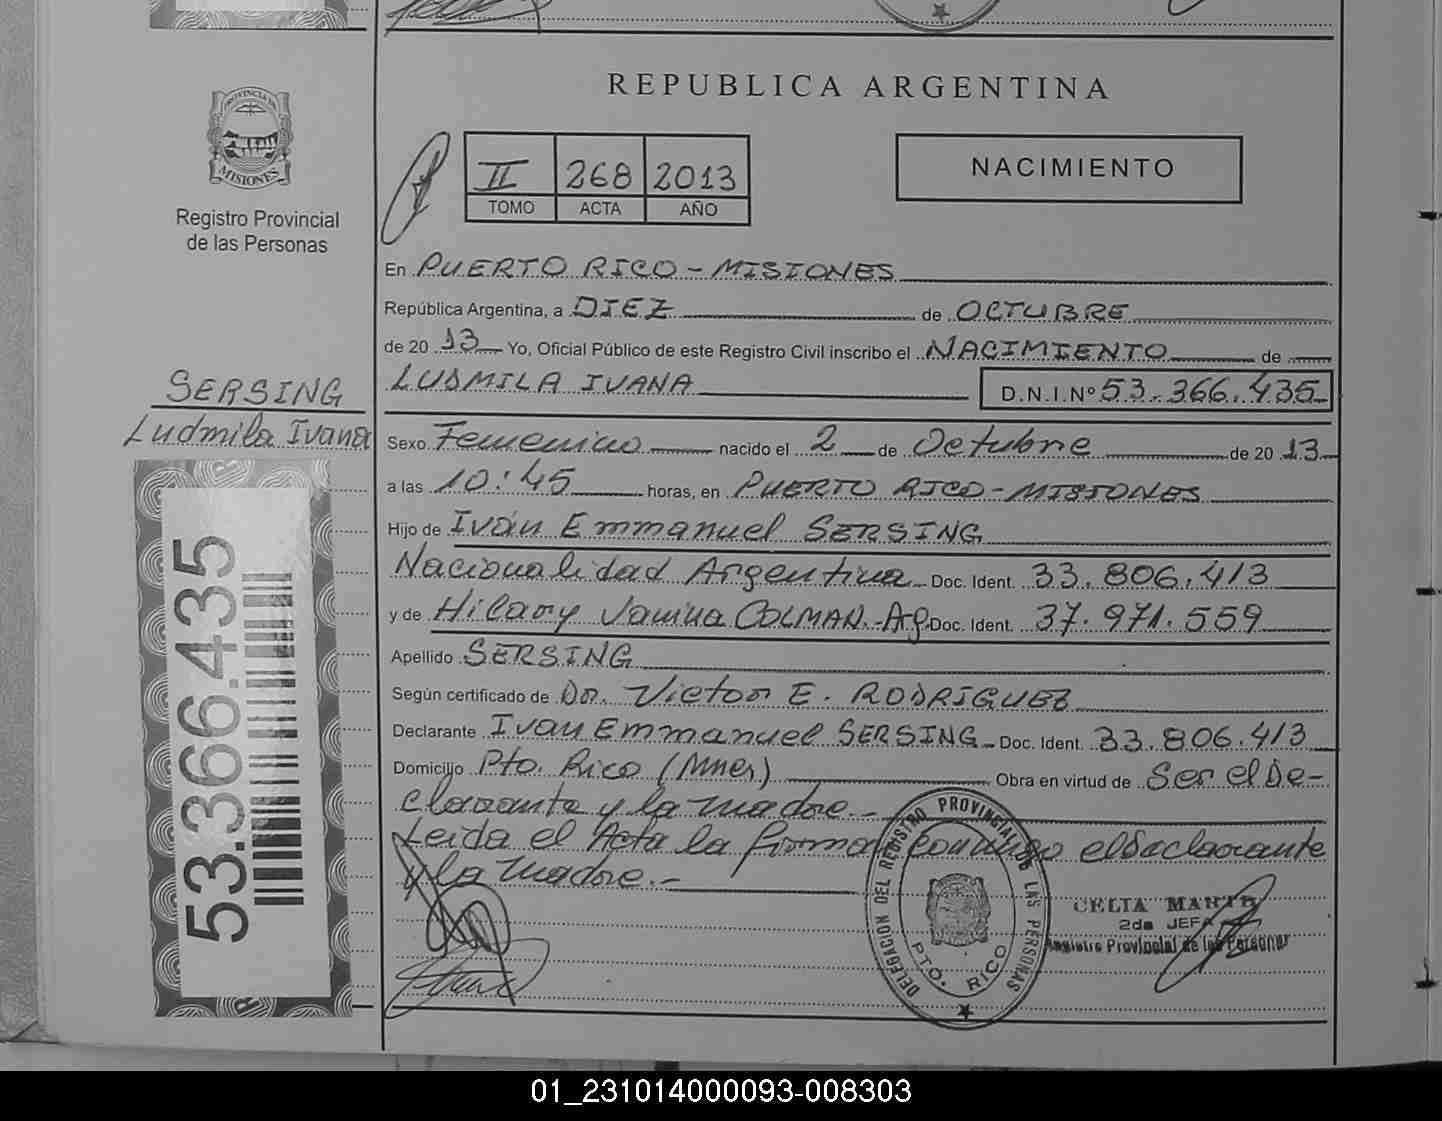 REPUBLICA ARGENTINA
PROVINCIA DE
MISIONES
Registro Provincial
de las Personas
II 268 2013
TOMO ACTA AÑO
NACIMIENTO
En PUERTO RICO - MISIONES
República Argentina, a DIEZ de OCTUBRE
de 20 13 Yo, Oficial Público de este Registro Civil inscribo el NACIMIENTO de
LUDMILA IVANA D.N.I.Nº 53.366.435
SERSING
Ludmila Ivana
Sexo Femenino nacido el 2 de Octubre de 20 13
a las 10:45 horas, en PUERTO RICO - MISIONES
Hijo de Iván Emmanuel SERSING
Nacionalidad Argentina Doc. Ident. 33.806.413
y de Hilary Janina COLMAN.-Arg. Doc. Ident. 37.971.559
Apellido SERSING
Según certificado de Dr. Victor E. RODRIGUEZ
Declarante Ivan Emmanuel SERSING Doc. Ident. 33.806.413
Domicilio Pto. Rico (Mnes) Obra en virtud de Ser el De-
clarante y la madre.-
Leida el Acta la firman conmigo el declarante
y la madre.-
53.366.435
DELEGACION DEL REGISTRO PROVINCIAL DE LAS PERSONAS
PTO. RICO
CELIA MARTA
2da JEFA
Registro Provincial de las Personas
01_231014000093-008303